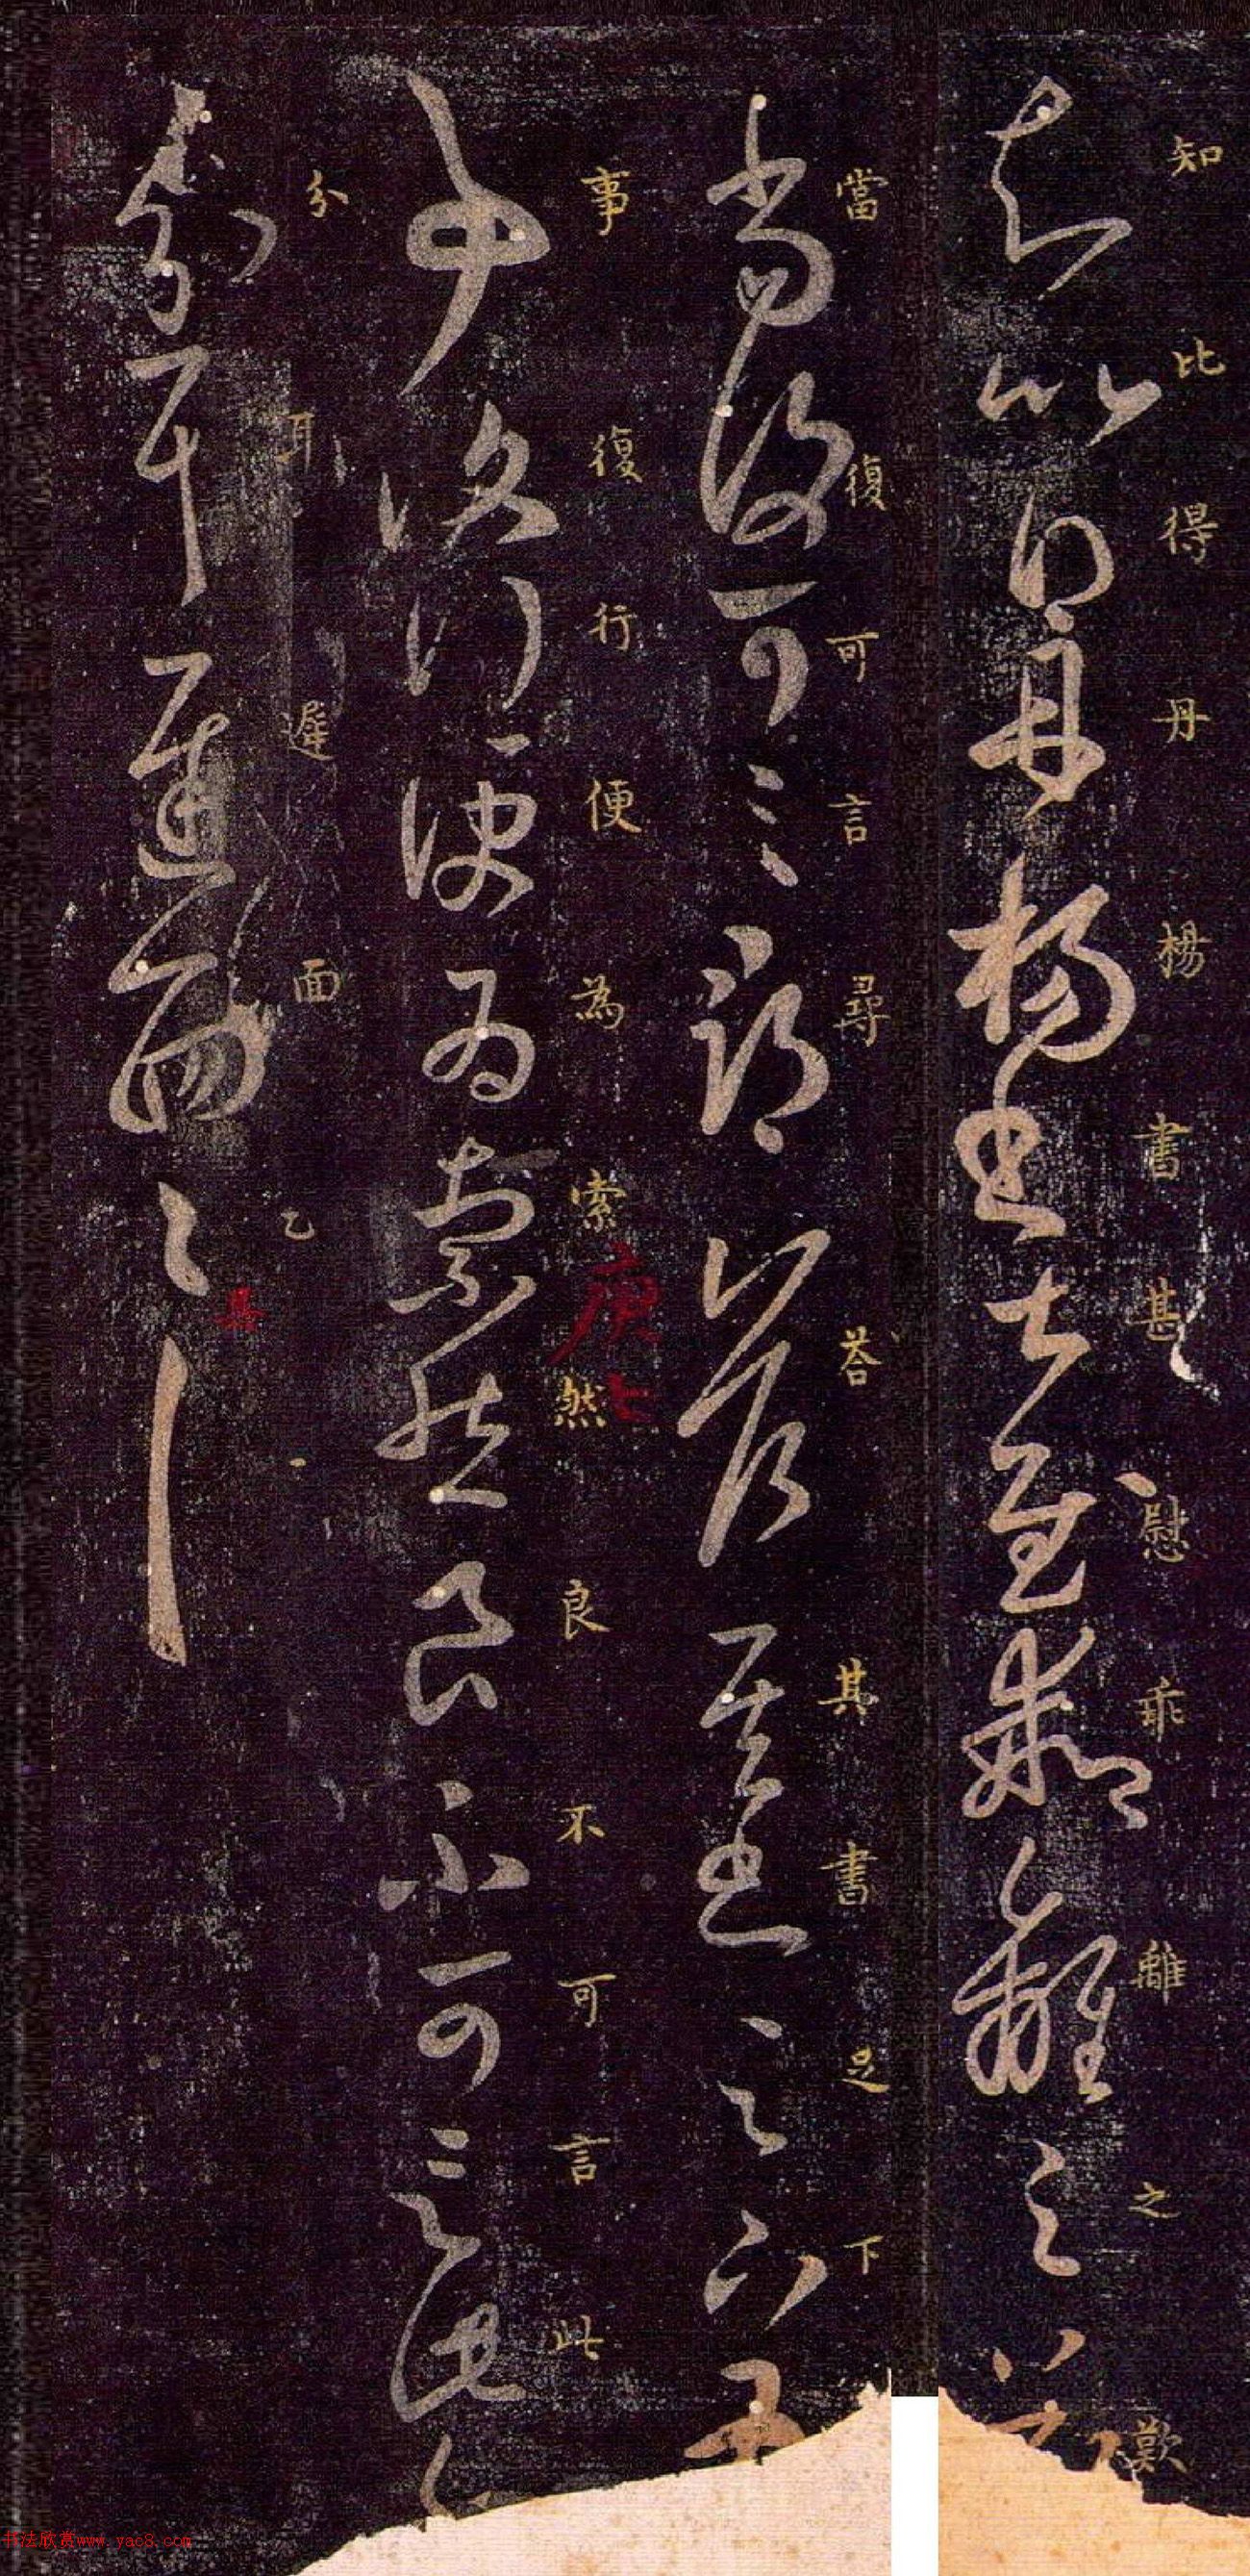 知比得丹楊書甚慰乖離之歎
當復可言尋荅其書足下
事復行便為索然良不可言此
分耳遲面乙
庚七
具
书法欣赏www.yac8.com